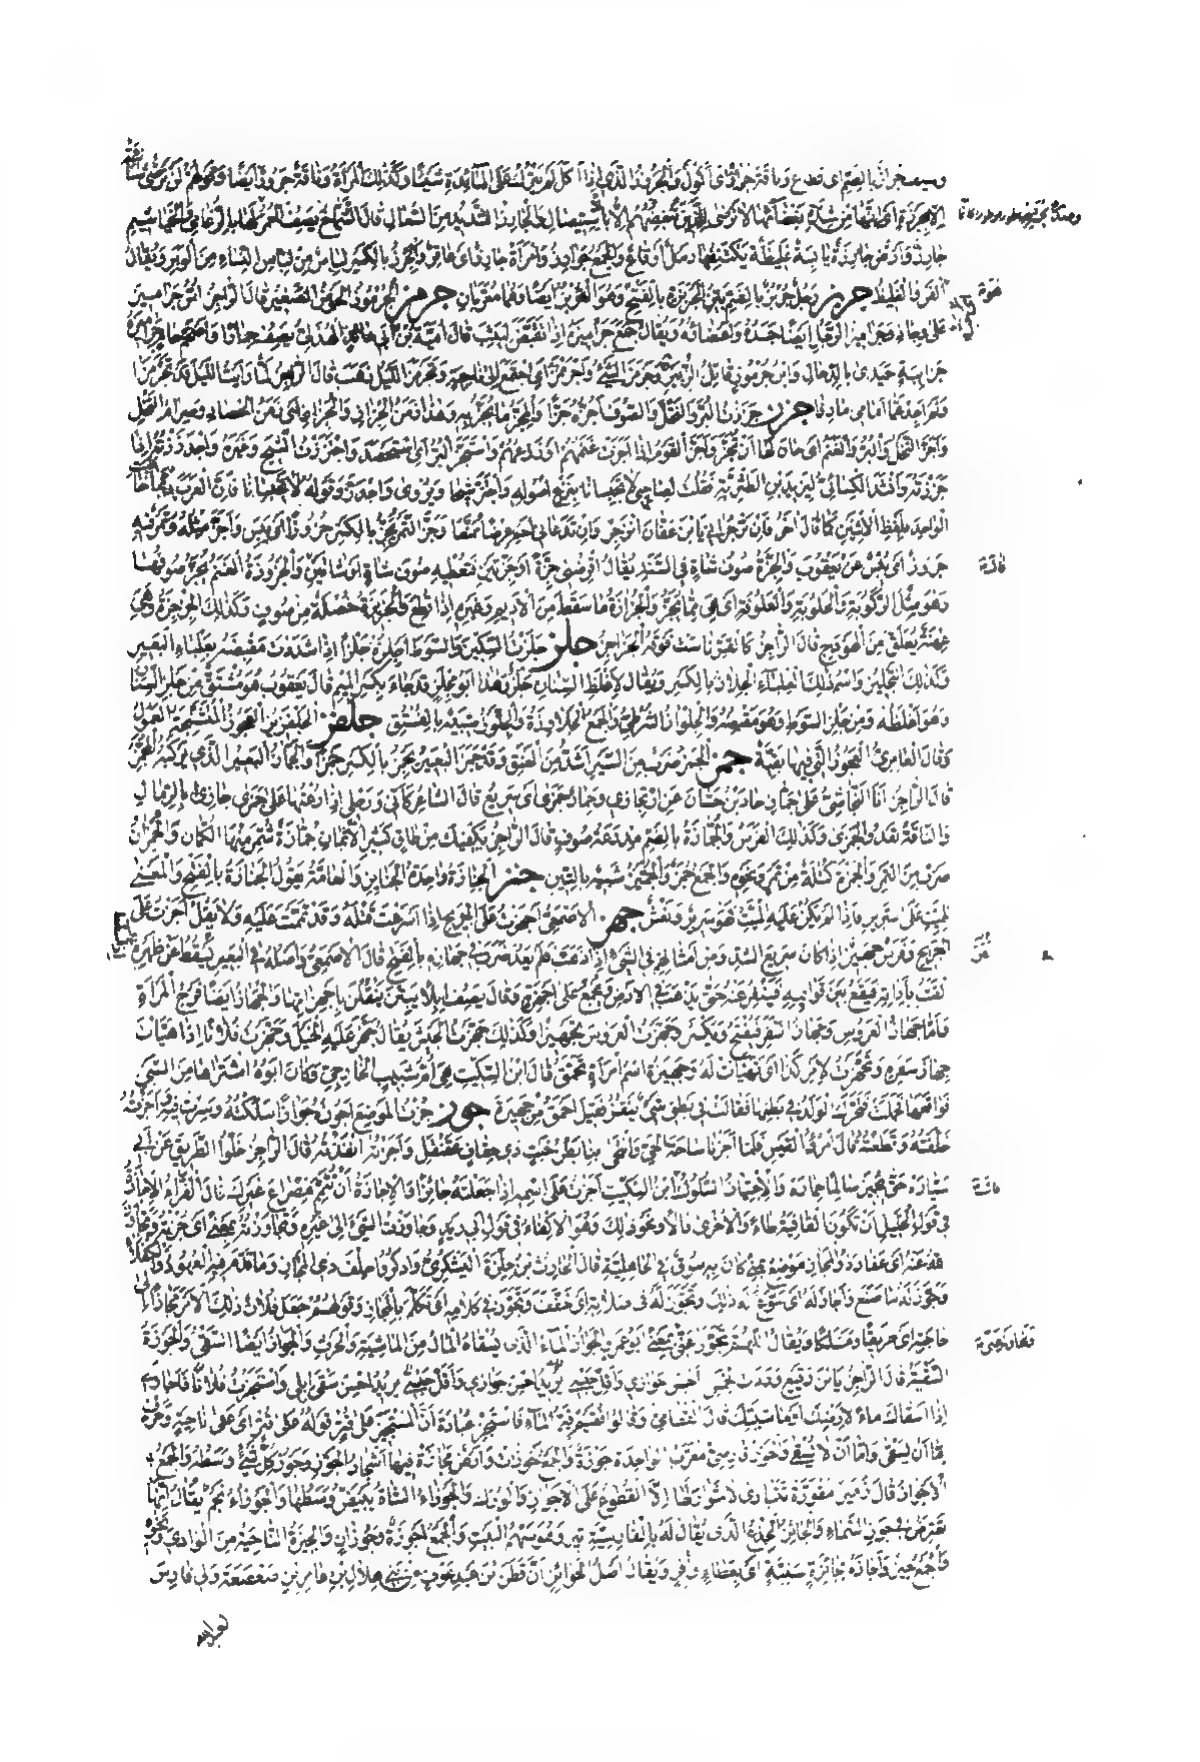 وسيف جراز بالضم اى قطاع وناقة جراز اى أكول والجروز الذى إذا أكل لم يترك على المائدة شيئا وكذلك المرأة وناقة جروز أيضا وقولهم لن ترضى شانئة
إلا بجرزة أى إنها من شدة بغضائها لا ترضى للذين تبغضهم إلا بالاستئصال والجارز الشديد من السعال قال الشماخ يصف الحمر لها بالرغامى والخياشيم
جارز وأرض جارزة يابسة غليظة يكتنفها رمل أو قاع والجمع جوارز وامرأة جارز أى عاقر والجرز بالكسر لباس من لباس النساء من الوبر ويقال
الفرو الغليظ جربز رجل جربز بالضم بين الجربزة بالفتح وهو القربز أيضا وهما معربان جرمز الجرموز الحوض الصغير قال الراجز
على وجاذ وجراميز الرجل أيضا جسده وأعضاؤه ويقال جمع جراميزه إذا تقبض ليثب قال أمية بن أبى عائذ الهذلى يصف حمارا وأصحم حام جراميزه
حزابية حيدى بالدحال وابن جرموز قاتل الزبير وجرمز الشئ واجرمز أى اجتمع إلى ناحية وتجرمز الليل ذهب قال الراجز لما رأيت الليل قد تجرمزا
ولم أجد عما أمامى مأرزا جزز جززت البر والنخل والصوف أجزه جزا والمجز ما يجز به وهذا زمن الجزاز والجزاز أى زمن الحصاد وصرام النخل
وأجز النخل والبر والغنم أى حان لها أن تجز وأجز القوم إذا أجزت غنمهم أو زرعهم واستجز البر أى استحصد واجتززت الشيح وغيره واجدززته إذا
جززته وأنشد الكسائى ليزيد بن الطثرية فقلت لصاحبى لا تحبسانا بنزع أصوله واجتز شيحا ويروى واجدز وقوله لا تحبسانا فإن العرب ربما خاطبت
الواحد بلفظ الاثنين كما قال آخر فإن تزجرانى يا ابن عفان أنزجر وإن تدعانى أحم عرضا ممنعا وجز التمر يجز بالكسر جزوزا أى يبس وأجز مثله وتمر فيه
جزوز أى يبس عن يعقوب والجزة صوف شاة فى السنة يقال أقرضنى جزة أو جزتين فتعطيه صوف شاة أو شاتين والجزوزة الغنم تجز صوفها
وهو مثل الركوبة والحلوبة والعلوفة أى هى مما يجز والجزازة ما سقط من الأديم وغيره إذا قطع والجزيزة خصلة من صوف وكذلك الجزجزة وهى
عهنة تعلق من الهودج قال الراجز كالقر ناست فوقه الجزاجز جلز جلزت السكين والسوط أجلزه جلزا إذا شددت مقبضه بعلباء البعير
وكذلك التجليز واسم ذلك العلباء الجلاز بالكسر ويقال لأغلظ السنان جلز وهذا أبو مجلز قد جاء بكسر الميم قال يعقوب هو مشتق من جلز السنان
وهو أغلظه ومن جلز السوط وهو مقبضه والجلواز الشرطى والجمع الجلاوزة والجلوز شبيه بالفستق جلفز الجلفزيز العجوز المتشنجة العمول
جمز الجمز ضرب من السير أشد من العنق وقد جمز البعير يجمز بالكسر جمزا والجماز البعير الذى يركبه المجمز
قال الراجز أنا النجاشى على جماز حاد بن حسان عن ارتجازى وحمار جمزى أى سريع قال الشاعر كأنى ورحلى إذا رعتها على جمزى جازئ بالرمال
والناقة تعدو الجمزى وكذلك الفرس والجمازة بالضم مدرعة صوف قال الراجز يكفيك من طاق كثير الأثمان جمازة شمر منها الكمان والجمزان
ضرب من التمر والجمزة كتلة من تمر ونحوه والجمع جمز والجميز شبيه بالتين جنز الجنازة واحدة الجنائز والعامة تقول الجنازة بالفتح والمعنى
الميت على السرير فإذا لم يكن عليه الميت فهو سرير ونعش جهز الأصمعى أجهزت على الجريح إذا أسرعت قتله وقد تممت عليه ولا تقل أجزت على
الجريح وفرس جهيز إذا كان سريع الشد ومن أمثالهم فى الشئ إذا ذهب فلم يعد ضرب فى جهازه بالفتح قال الأصمعى وأصله فى البعير يسقط عن ظهره
القتب بأداته فيقع بين قوائمه فينفر عنه حتى يذهب فى الأرض ويجمع على أجهزة وقال يصف إبلا يبتن ينقلن بأجهزاتها والجهاز أيضا فرج المرأة
فأما جهاز العروس وجهاز السفر فيفتح ويكسر وجهزت العروس تجهيزا وكذلك جهزت الجيش يقال جهز عليه الخيل وجهزت فلانا إذا هيأت
جهاز سفره وتجهزت لأمر كذا أى تهيأت له وجهيزة اسم امرأة تحمق قال ابن السكيت هى أم شبيب الخارجى وكان أبوه اشتراها من السبى
فواقعها فحملت فتحرك الولد فى بطنها فقالت فى بطنى شئ ينقز فقيل أحمق من جهيزة جوز جزت الموضع أجوزه جوازا سلكته وسرت فيه وأجزته
خلفته وقطعته قال امرؤ القيس فلما أجزنا ساحة الحى وانتحى بنا بطن خبت ذى حقاف عقنقل وأجزته أنفذته قال الراجز خلوا الطريق عن أبى
سيارة حتى يجيز سالما حماره والاجتياز السلوك ابن السكيت أجزت على اسمه إذا جعلته جائزا والإجازة أن تتمم مصراع غيرك قال الفراء الإجازة
فى قول الخليل أن تكون القافية طاء والأخرى دالا ونحو ذلك وهو الإكفاء فى قول أبى زيد وجاوزت الشئ إلى غيره وتجاوزته بمعنى أى جزته وتجاوز
الله عنه أى عفا وذو المجاز موضع بمنى كان به سوق فى الجاهلية قال الحارث بن حلزة اليشكرى واذكروا حلف ذى المجاز وما قدم فيه العهود والكفلاء
وجوز له ما صنع وأجاز له أى سوغ له ذلك وتجوز له فى صلاته أى خفف وتجوز فى كلامه أى تكلم بالمجاز وقولهم جعل فلان ذلك الأمر مجازا إلى
حاجته أى طريقا ومسلكا ويقال اللهم تجوز عنى وتجاوز عنى بمعنى أبو عمرو الجواز الماء الذى يسقاه المال من الماشية والحرث والجواز أيضا السقى والجوزة
السقية قال الراجز يا ابن رقيع وردت لخمس أحسن جوازى وأقل حبسى يريد أحسن سقى إبلى واستجزت فلانا فأجازنى
إذا أسقاك ماء لأرضك أو ماشيتك قال القطامى وقالوا فقيم قيم الماء فاستجز عبادة إن المستجيز على قتر قوله على قتر أى على ناحية وحرف
إما أن يسقى وإما أن لا يسقى والجوز فارسى معرب الواحدة جوزة والجمع جوزات وأرض مجازة فيها أشجار الجوز وجوز كل شئ وسطه والجمع
الأجواز قال زهير مقورة تتبارى لا شوار لها إلا القطوع على الأجواز والورك والجوزاء الشاة يبيض وسطها والجوزاء نجم يقال إنها
تعترض فى جوز السماء والجائز الجذع الذى يقال له بالفارسية تير وهو سهم البيت والجمع أجوزة وجوزان والجيزة الناحية من الوادى ونحوه
والجمع جيز وأجازه بجائزة سنية أى بعطاء ويقال أصل الجوائز أن قطن بن عبد عوف من بنى هلال بن عامر بن صعصعة ولى فارس